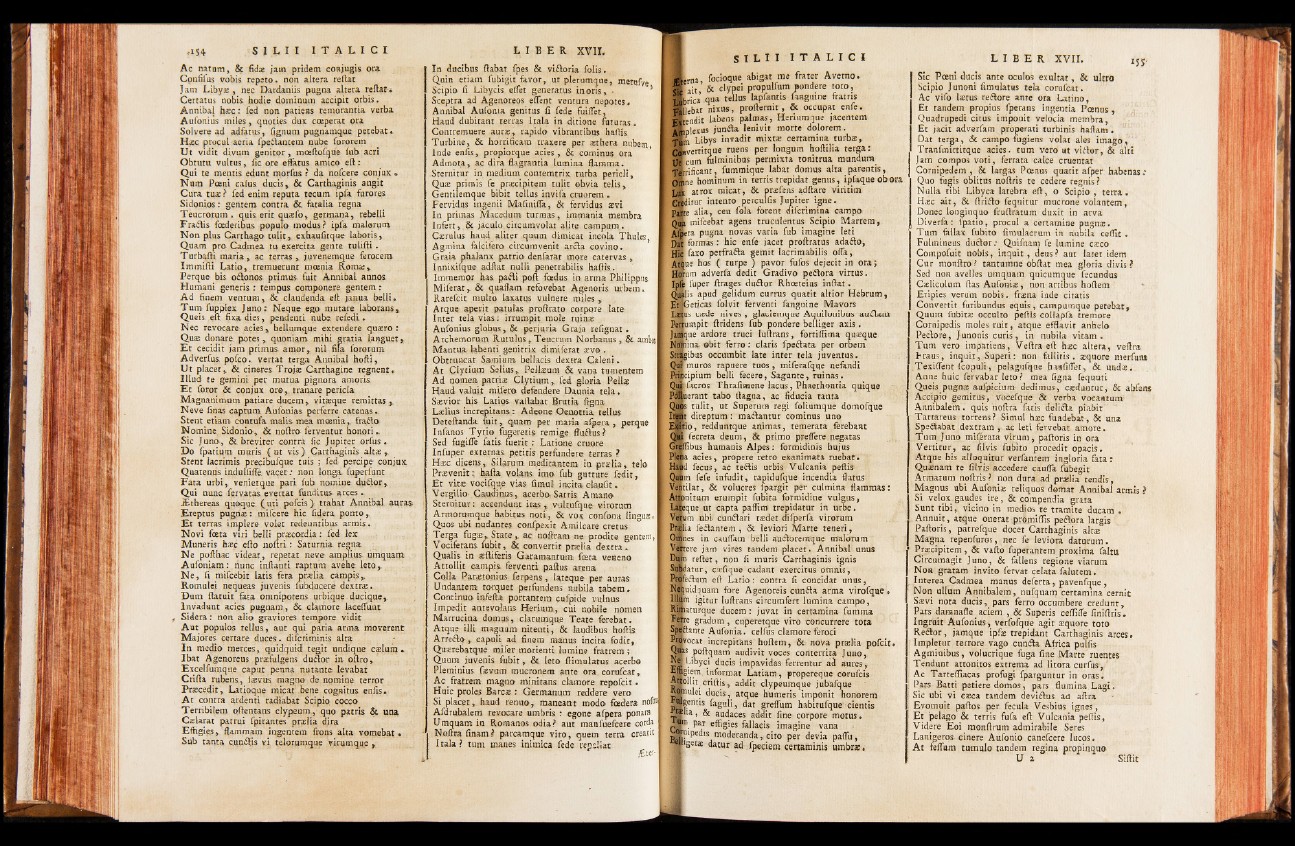 154 SILII ITALICI
Ac natum, & fidæ jam pridem conjugis ora
Confisus vobis repeto. non altera restat
Jam Libyæ, nec Dardaniis pugna altera restat.
Certatus nobis hodie dominum accipit orbis.
Annibal hæc: sed non patiens remorantia verba
Ausonius miles, quoties dux cœperat ora
Solvere ad adfatus, signum pugnamque petebat.
Hæc procul aeria spectantem nube sororem
Ut vidit divum genitor, mœstosque sub acri
Obtutu vultus, sic ore effatus amico est:
Qui te mentis edunt morsus? da noscere conjux.
Num Pœni casus ducis, & Carthaginis angit
Cura tuæ? sed enim reputa tecum ipsa furores
Sidonios: gentem contra & fatalia regna
Teucrorum. quis erit quæso, germana, rebelli
Fractis fœderibus populo modus? ipsa malorum
Non plus Carthago tulit, exhausitque laboris,
Quam pro Cadmea tu exercita gente tulisti.
Turbasti maria, ac terras, juvenemque ferocem
Immisti Latio, tremuerunt mœnia Romæ,
Perque bis octonos primus fuit Annibal annos
Humani generis: tempus componere gentem:
Ad finem ventum, & claudenda est janua belli.
Tum supplex Juno: Neque ego mutare laborans,
Queis est fixa dies, pendenti nube resedi.
Nec revocare acies, bellumque extendere quæro:
Quæ donare potes, quoniam mihi gratia languet,
Et cecidit jam primus amor, nil fila sororum
Adversus posco. vertat terga Annibal hosti,
Ut placet, & cineres Trojæ Carthagine regnent.
Illud te gemini per mutua pignora amoris
Et soror & conjux oro, tranare pericla
Magnanimum patiare ducem, vitæque remittas,
Neve sinas captum Ausonias perferre catenas.
Stent etiam contusa malis mea mœnia, fracto
Nomine Sidonio, & nostro serventur honori.
Sic Juno, & breviter contra sic Jupiter orsus.
Do spatium muris (ut vis) Carthaginis altæ,
Stent lacrimis precibusque tuis: sed percipe conjux
Quatenus indulsisse vacet: non longa supersunt
Fata urbi, venietque pari sub nomine ductor,
Qui nunc servatas evertat funditus arces.
Æthereas quoque (uti poscis) trahat Annibal auras
Ereptus pugnæ: miscere hic sidera ponto,
Et terras implere volet redeuntibus armis.
Novi fœta viri belli præcordia: sed lex
Muneris hæc esto nostri: Saturnia regna
Ne posthac videat, repetat neve amplius umquam
Ausoniam: nunc instanti raptum avehe leto,
Ne, si miscebit latis fera prælia campis,
Romulei nequeas juvenis subducere dextræ.
Dum statuit fata omnipotens urbique ducique,
Invadunt acies pugnam, & clamore lacessunt
Sidera: non alio graviores tempore vidit
Aut populos tellus, aut qui paria arma moverent
Majores certare duces. discriminis alta
In medio merces, quidquid tegit undique cælum.
Ibat Agenorens præfulgens ductor in ostro,
Excelsumque caput penna nutante levabat
Crista rubens, sævus magno de nomine terror
Præcedit, Latioque micat bene cognitus ensis.
At contra ardenti radiabat Scipio cocco
Terribilem ostentans clypeum, quo patris & una
Cælarat patrui spirantes prælia dira
Effigies, flammam ingentem frons alta vomebat.
Sub tanta cunctis vi telorumque virumque,
LIBER XVII.
In ducibus stabat spes & victoria solis.
Quin etiam subigit favor, ut plerumque, metusve,
Scipio si Libycis esset generatus in oris,
Sceptra ad Agenoreos essent ventura nepotes.
Annibal Ausonia genitus si sede fuisset,
Haud dubitant terras Itala in ditione futuras.
Contremuere auræ, rapido vibrantibus hastis
Turbine, & horrificam traxere per æthera nubem,
Inde ensis, propiorque acies, & cominus ora
Admota, ac dira flagrantia lumina flamma.
Sternitur in medium contemtrix turba pericli,
Quæ primis se præcipitem tulit obvia telis,
Gentilemque bibit tellus invisa cruorem.
Fervidus ingenii Masinissa, & fervidus ævi
In primas Macedum turmas, immania membra
Infert, & jaculo circumvolat alite campum.
Cærulus haud aliter quum dimicat incola Thules,
Agmina falcifero circumvenit arcta covino.
Graia phalanx patrio densarat more catervas,
Innixisque adstat nulli penetrabilis hastis.
Immemor has pacti post fœdus in arma Philippus
Miserat, & quassam refovebat Agenoris urbem.
Rarescit multo laxatus vulnere miles,
Atque aperit patulas prostrato corpore late
Inter tela vias: irrumpit mole ruinæ
Ausonius globus, & perjuria Graja resignat.
Archemorum Rutulus, Teucrum Norbanus, & ambæ
Mantua labenti genitrix dimiserat ævo.
Obtruncat Samium bellacis dextra Caleni.
At Clytium Selius, Pellæum & vana tumentem
Ad nomen patriæ Clytium, sed gloria Pellæ
Haud valuit misero defendere Daunia tela.
Sævior his Latios vastabat Brutia signa
Lælius increpitans: Adeone Oenotria tellus
Detestanda fuit, quam per maria aspera, perque
Insanos Tyrio fugeretis remige fluctus?
Sed fugisse satis fuerit: Latione cruore
Insuper externas petitis perfundere terras?
Hæc dicens, Silarum meditantem in prælia, telo
Prævenit: hasta volans imo sub gutture sedit,
Et vitæ vocisque vias simul incita clausit.
Vergilio Caudinus, acerbo Sarris Amano
Sternitur: accendunt iras, vultusque virorum
Armorumque habitus noti, & vox consona linguæ.
Quos ubi nudantes conspexit Amilcare cretus
Terga fugæ, State, ac nostram ne prodite gentem,
Vociferans subit, & convertit prælia dextra.
Qualis in æstiferis Garamantum fœta veneno
Attollit campis ferventi pastus arena
Colla Parætonius serpens, lateque per auras
Undantem torquet perfundens nubila tabem.
Continuo infesta portantem cuspide vulnus
Impedit antevolans Herium, cui nobile nomen
Marrucina domus, clarumque Teate ferebat.
Atque illi magnum nitenti, & laudibus hostis
Arrecto, capuli ad finem manus incita sodit,
Quærebatque miser morienti lumine fratrem:
Quum juvenis subit, & leto stimulatus acerbo
Pleminius sævum mucronem ante ora coruscat,
Ac fratrem magno minitans clamore reposcit.
Huic proles Barcæ: Germanum reddere vero
Si placet, haud renuo, maneant modo fœdera nostra
Asdrubalem revocare umbris: egone aspera ponam
Umquam in Romanos odia? aut mansuescere corda
Nostra sinam? parcamque viro, quem terra crearit
Itala? tum manes inimica sede repellat
SILII ITALICI
Æterna, socioque abigat me frater Averno.
Sic ait, & clypei propulsum pondere toro,
Lubrica qua tellus lapsantis sanguine fratris
Fallebat nixus, prosternit, & occupat ense.
Extendit labens palmas, Heriumque jacentem
Amplexus juncta lenivit morte dolorem.
Tum Libys invadit mixtæ certamina turbæ,
Convertitque ruens per longum hostilia terga:
Ut cum fulminibus permixta tonitrua mundum
Terrificant, summique labat domus alta parentis,
Omne hominum in terris trepidat genus, ipsaque ob ora
Lux atrox micat, & præsens adstare viritim
Creditur intento perculsis Jupiter igne.
Parte alia, ceu sola forent discrimina campo
Qua miscebat agens truculentus Scipio Martem,
Aspera pugna novas varia sub imagine leti
Dat formas: hic ense jacet prostratus adacto,
Hic saxo perfracta gemit lacrimabilis ossa,
Atque hos (turpe) pavor fusos dejecit in ora;
Horum adversa dedit Gradivo pectora virtus.
Ipse super strages ductor Rhœteius instat.
Qualis apud gelidum currus quatit altior Hebrum,
Et Geticas solvit ferventi sanguine Mavors
Lætus cæde nives, glaciemque Aquilonibus auctam
Perrumpit stridens sub pondere belliger axis.
Jamque ardore truci lustrans, fortissima quæque
Nomina obit ferro: claris spectata per orbem
Stragibus occumbit late inter tela juventus.
Qui muros rapuere tuos, miserasque nefandi
Principium belli fecere, Sagunte, ruinas.
Qui sacros Thrasimene lacus, Phaethontia quique
Polluerant tabo stagna, ac fiducia tanta
Quos tulit, ut Superum regi soliumque domosque
Irent direptum: mactantur cominus uno
Exitio, redduntque animas, temerata ferebant
Qui secreta deum, & primo presse negatas
Gressibus humanis Alpes: formidinis hujus
Plena acies, propere retro exanimata ruebat.
Haud secus, ac tectis urbis Vulcania pestis
Quum sese infudit, rapidusque incendia flatus
Ventilat, & volucres spargit per culmina flammas:
Attonitum erumpit subita formidine vulgus,
Lateque ut capta passim trepidatur in urbe.
Verum ubi cunctari tædet dispersa virorum
Prælia sectantem, & leviori Marte teneri,
Omnes in caussam belli auctoremque malorum
Vertere jam vires tandem placet. Annibal unus
Dum restet, non si muris Carthaginis ignis
Subdatur, cæsique cadant exercitus omnis,
Profectum est Latio: contra si concidat unus,
Nequidquam fore Agenoreis cuncta arma virosque.
Illum igitur lustrans circumfert lumina campo,
Rimaturque ducem: juvat in certamina summa
Ferre gradum, cuperetque viro concurrere tota
Spectante Ausonia. celsus clamore feroci
Provocat increpitans hostem, & nova prælia poscit.
Quas postquam audivit voces conterrita Juno,
Ne Libyci ducis impavidas ferrentur ad aures,
Effigiem informat Latiam, propereque coruscis
Attollit cristis, addit clypeumque jubasque
Romulei ducis, atque humeris imponit honorem
Fulgentis saguli, dat gressum habitusque cientis
Prælia, & audaces addit sine corpore motus.
Tum par effigies fallacis imagine vana
Cornipedis moderanda, cito per devia passu,
Belligeræ datur ad speciem certaminis umbræ.
LIBER XVII. 155
Sic Pœni ducis ante oculos exultat, & ultro
Scipio Junoni simulatus tela coruscat.
Ac viso lætus rectore ante ora Latino,
Et tandem propius sperans ingentia Pœnus,
Quadrupedi citus imponit velocia membra,
Et jacit adversam properati turbinis hastam.
Dat terga, & campo fugiens volat ales imago,
Transmittitque acies. tum vero ut victor, & alti
Jam compos voti, ferrata calce cruentat
Cornipedem, & largas Pœnus quatit asper habenas:
Quo fugis oblitus nostris te cedere regnis?
Nulla tibi Libyca latebra est, o Scipio, terra.
Hæc ait, & stricto sequitur mucrone volantem,
Donec longinquo frustratum duxit in arva
Diversa spatio, procul a certamine pugnæ.
Tum fallax subito simulacrum in nubila cessit.
Fulmineus ductor: Quisnam se lumine cæco
Composuit nobis, inquit, deus? aut latet idem
Cur monstro? tantumne obstat mea gloria divis?
Sed non avelles umquam quicumque secundus
Cælicolum stas Ausoniæ, non artibus hostem
Eripies verum nobis. fræna inde citatis
Convertit furibundus equis, campumque petebat,
Quum subitæ occulto pestis collapsa tremore
Cornipedis moles ruit, atque efflavit anhelo
Pectore, Junonis curis, in nubila vitam.
Tum vero impatiens, Vestra est hæc altera, vestra
Fraus, inquit, Superi: non fallitis. æquore mersum
Texissent scopuli, pelagusque hausisset, & undæ.
Anne huic servabar leto? mea signa sequuti
Queis pugnæ auspicium dedimus, cæduntur, & absens
Accipio gemitus, vocesque & verba vocantum
Annibalem. quis nostra satis delicta piabit
Tartareus torrens? Simul hæc fundebat, & una
Spectabat dextram, ac leti fervebat amore.
Tum Juno miserata virum, pastoris in ora
Vertitur, ac silvis subito procedit opacis.
Atque his alloquitur versantem ingloria fata:
Quænam te silvis accedere caussa subegit
Armatum nostris? non dura ad prælia tendis,
Magnus ubi Ausoniæ reliquos domat Annibal armis?
Si velox gaudes ire, & compendia grata
Sunt tibi, vicino in medios te tramite ducam.
Annuit, atque onerat promissis pectora largis
Pastoris, patresque docet Carthaginis altæ
Magna repensuros, nec se leviora daturum.
Præcipitem, & vasto superantem proxima saltu
Circumagit Juno, & fallens regione viarum
Non gratam invito servat celata salutem.
Interea Cadmea manus deserta, pavensque,
Non ullum Annibalem, nusquam certamina cernit
Sævi nota ducis, pars ferro occumbere credunt,
Pars damnasse aciem, & Superis cessisse sinistris.
Ingruit Ausonius, versosque agit æquore toto
Rector, jamque ipsæ trepidant Carthaginis arces,
Impletur terrore vago cuncta Africa pulsis
Agminibus, volucrique fuga sine Marte ruentes
Tendunt attonitos extrema ad litora cursus,
Ac Tartessiacas profugi sparguntur in oras.
Pars Batti petiere domos, pars flumina Lagi.
Sic ubi vi cæca tandem devictus ad astra
Evomuit pastos per secula Vesbius ignes,
Et pelago & terris fusa est Vulcania pestis,
Videre Eoi monstrum admirabile Seres
Lanigeros cinere Ausonio canescere lucos.
At fessum tumulo tandem regina propinquo
U 2 Sistit